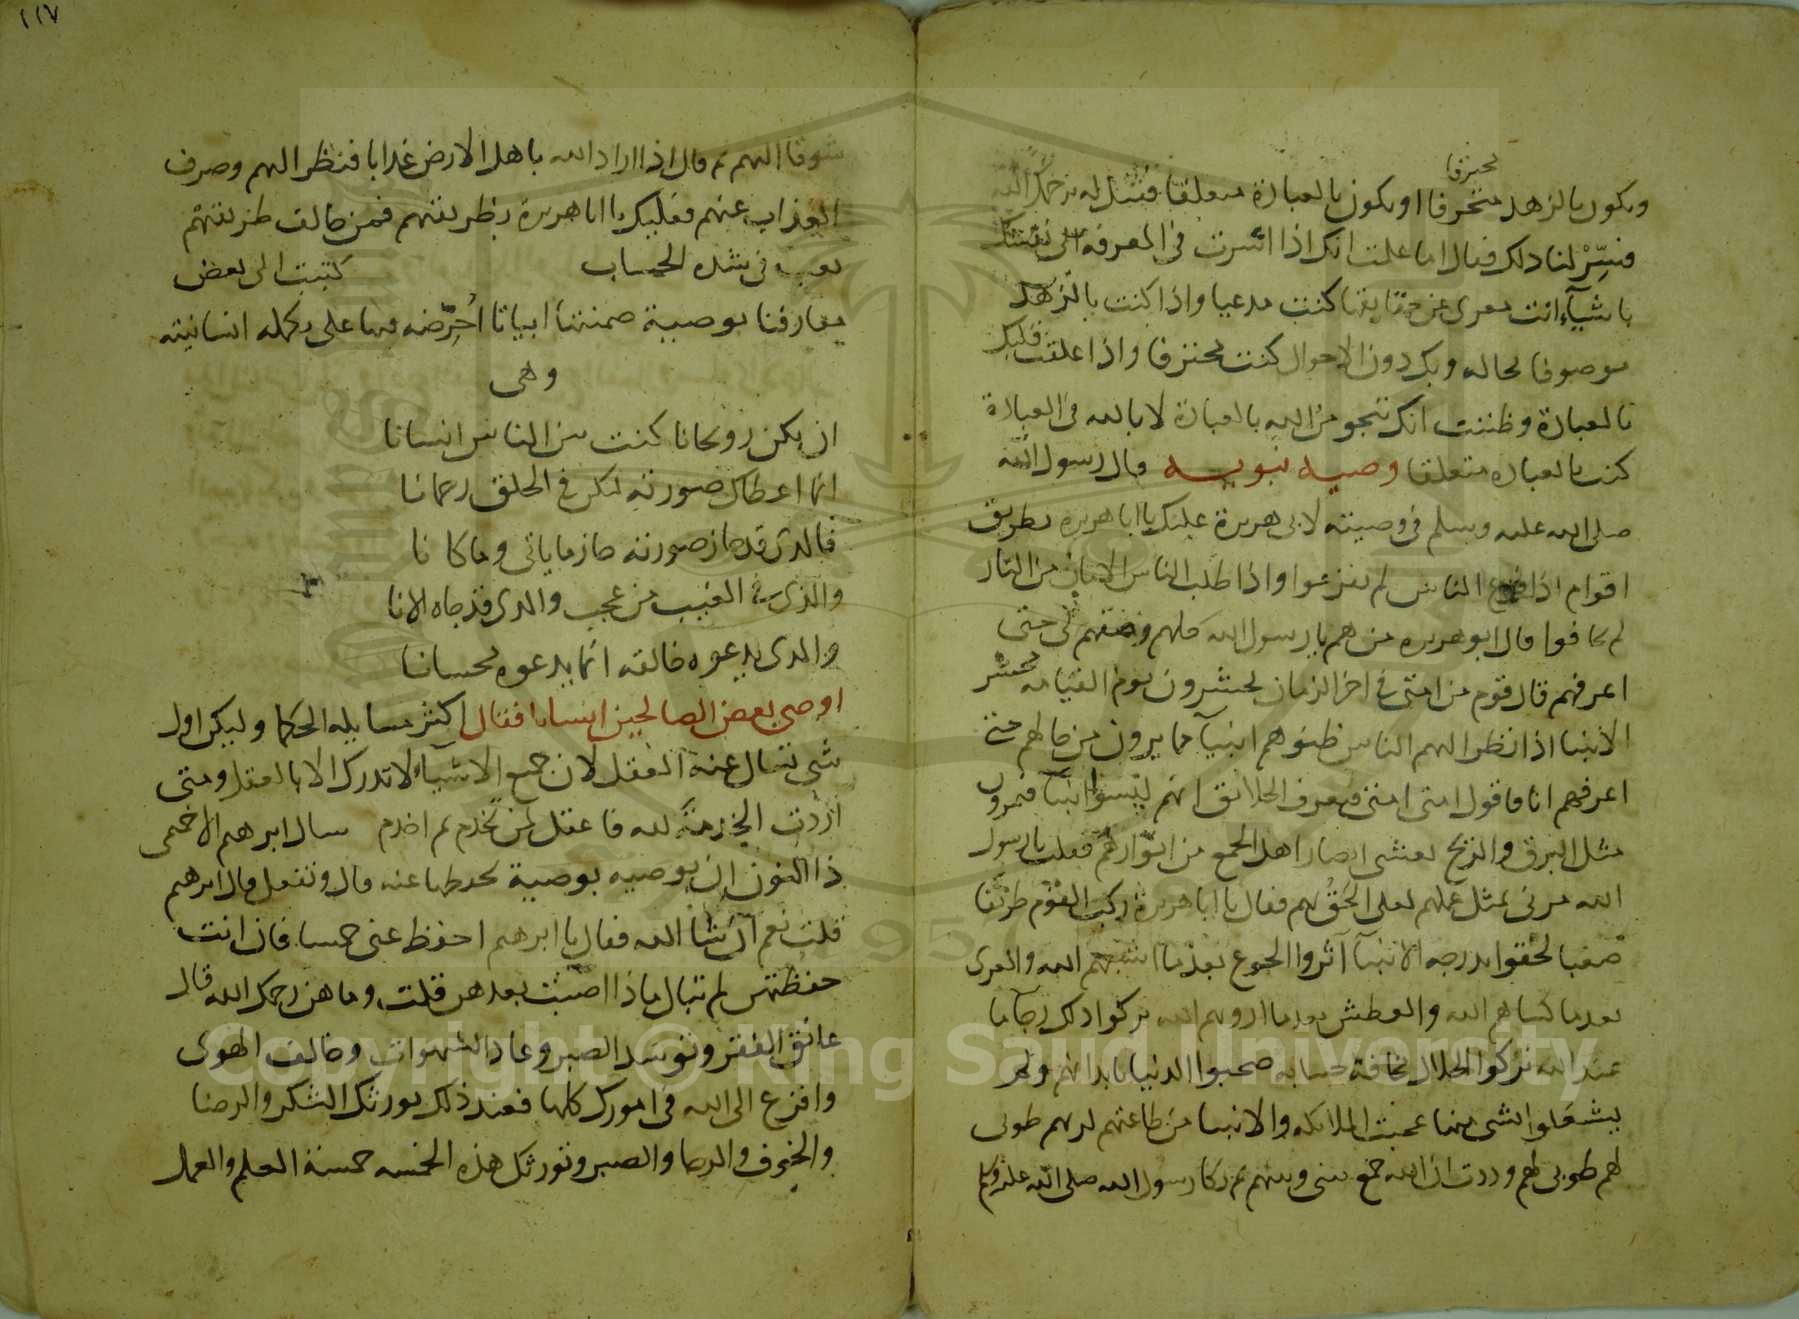 محترفا
ويكون بالزهد متحرفا او يكون بالعبادة متعلقا فقيل له يرحمك الله
فسر لنا ذلك فقال اما علمت انك اذا اشرت في المعرفة الى نفسك
باشياء انت معرى عن حقايقها كنت مدعيا واذا كنت بالزهد
موصوفا بحاله وبك دون الاحوال كنت محترفا واذا علقت قلبك
بالعبادة وظننت انك تنجو من الله بالعبادة لا بالله في العبادة
كنت بالعباده متعلقا وصيه نبويه قال رسول الله
صلى الله عليه وسلم في وصيته لابي هريرة عليك يا ابا هريره بطريق
اقوام اذا فزع الناس لم يفزعوا واذا طلب الناس الامان من النار
لم يخافوا قال ابو هريره من هم يا رسول الله حلهم وصفهم لي حتى
اعرفهم قال قوم من امتي في اخر الزمان يحشرون يوم القيامه محشر
الانبيا اذا نظر اليهم الناس ظنوهم انبياء مما يرون من حالهم حتى
اعرفهم انا فاقول امتي امتي فيعرف الخلائق انهم ليسوا انبياء فيمرون
مثل البرق والريح تعشى ابصار اهل الجمع من انوارهم فقلت يا رسول
الله مرني بمثل عملهم لعلي الحق بهم فقال يا ابا هريرة ركب القوم طريقا
صعبا لحقوا بدرجه الانبياء آثروا الجوع بعدما اشبعهم الله والعرى
بعدما كساهم الله والعطش بعدما ارواهم الله تركوا ذلك رجاء ما
عند الله تركوا الحلال مخافة حسابه صحبوا الدنيا بابدانهم ولم
يشغلوا بشي منها عجبت الملائكه والانبيا من طاعتهم لربهم طوبى
لهم طوبى لهم وددت ان الله جمع بيني وبينهم ثم بكا رسول الله صلى الله عليه وسلم
١١٧
شوقا اليهم ثم قال اذا اراد الله باهل الارض عذابا فنظر اليهم وصرف
العذاب عنهم فعليك يا ابا هريرة بطريقتهم فمن خالف طريقتهم
تعب في شدة الحساب كتبت الى بعض
معارفنا بوصية ضمنتها ابياتا احرضه فيها على تكمله انسانيته
وهي
ان يكن روحانا كنت من الناس انسانا
انما اعطاك صورته لتكن في الخلق رحمانا
فالذي قد حاز صورته حاز ما ياتي وما كانا
والذي في الغيب من عجب والذي قد جاه الانا
والذي يدعوه خالقه انما يدعوه محسانا
اوصى بعض الصالحين انسانا فقال اكثر مسايله الحكما وليكن اول
شي تسال عنه العقل لان جميع الاشياء لا تدرك الا بالعقل ومتى
اردت الخدمة لله فاعقل لمن تخدم ثم اخدم سال ابرهيم الاخميمي
ذا النون ان يوصيه بوصية يحفظها عنه قال وتفعل قال ابرهيم
قلت نعم ان شا الله فقال يا ابرهيم احفظ عني خمسا فان انت
حفظتهن لم تبال ماذا اصبت بعدهن قلت وما هن رحمك الله قال
عانق الفقر وتوسد الصبر وعاد الشهوات وخالف الهوى
وافزع الى الله في امورك كلها فعند ذلك يورثك الشكر والرضا
والخوف والرجا والصبر وتورثك هذه الخمسه خمسة العلم والعمل
Copyright © King Saud University